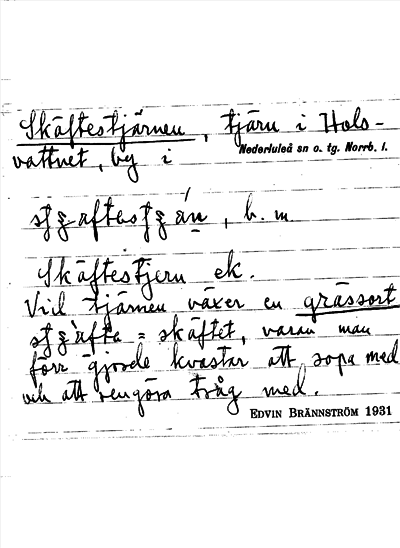 Skäftestjärnen, tjärn i Hols-
vattnet, by i Nederluleå sn o. tg. Norrb. l.
b. m
Skäftestjern ek.
Vid tjärnen växer en grässort
= skäftet, varav man
förr gjorde kvastar att sopa med
och att rengöra tråg med.
EDVIN BRÄNNSTRÖM 1931